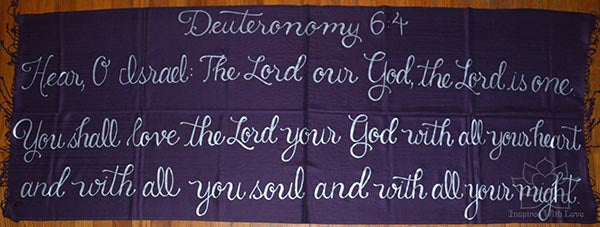 Deuteronomy 6:4
Hear, O Israel: The Lord our God, the Lord is one.
You shall love the Lord your God with all your heart
and with all you soul and with all your might.
Inspired With Love